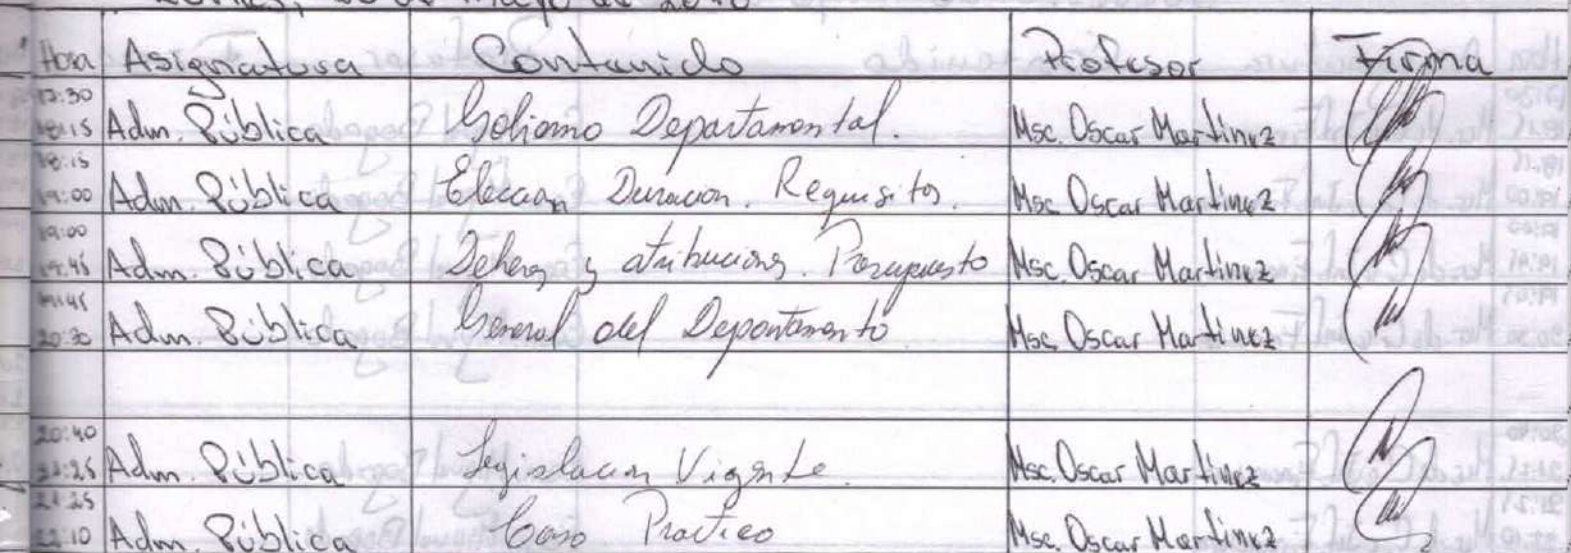 de Mayo de 2010
Hora Asignatura Contenido Profesor Firma
17:30 18:15 Adm. Pública Gobierno Departamental. Msc. Oscar Martínez
18:15 19:00 Adm. Pública Elección Duración. Requisitos. Msc. Oscar Martínez
19:00 19:45 Adm. Pública Deberes y atribuciones. Presupuesto Msc. Oscar Martínez
19:45 20:30 Adm. Pública General del Departamento Msc. Oscar Martínez
20:40 21:25 Adm. Pública Legislación Vigente. Msc. Oscar Martínez
21:25 22:10 Adm. Pública Caso Practico Msc. Oscar Martínez